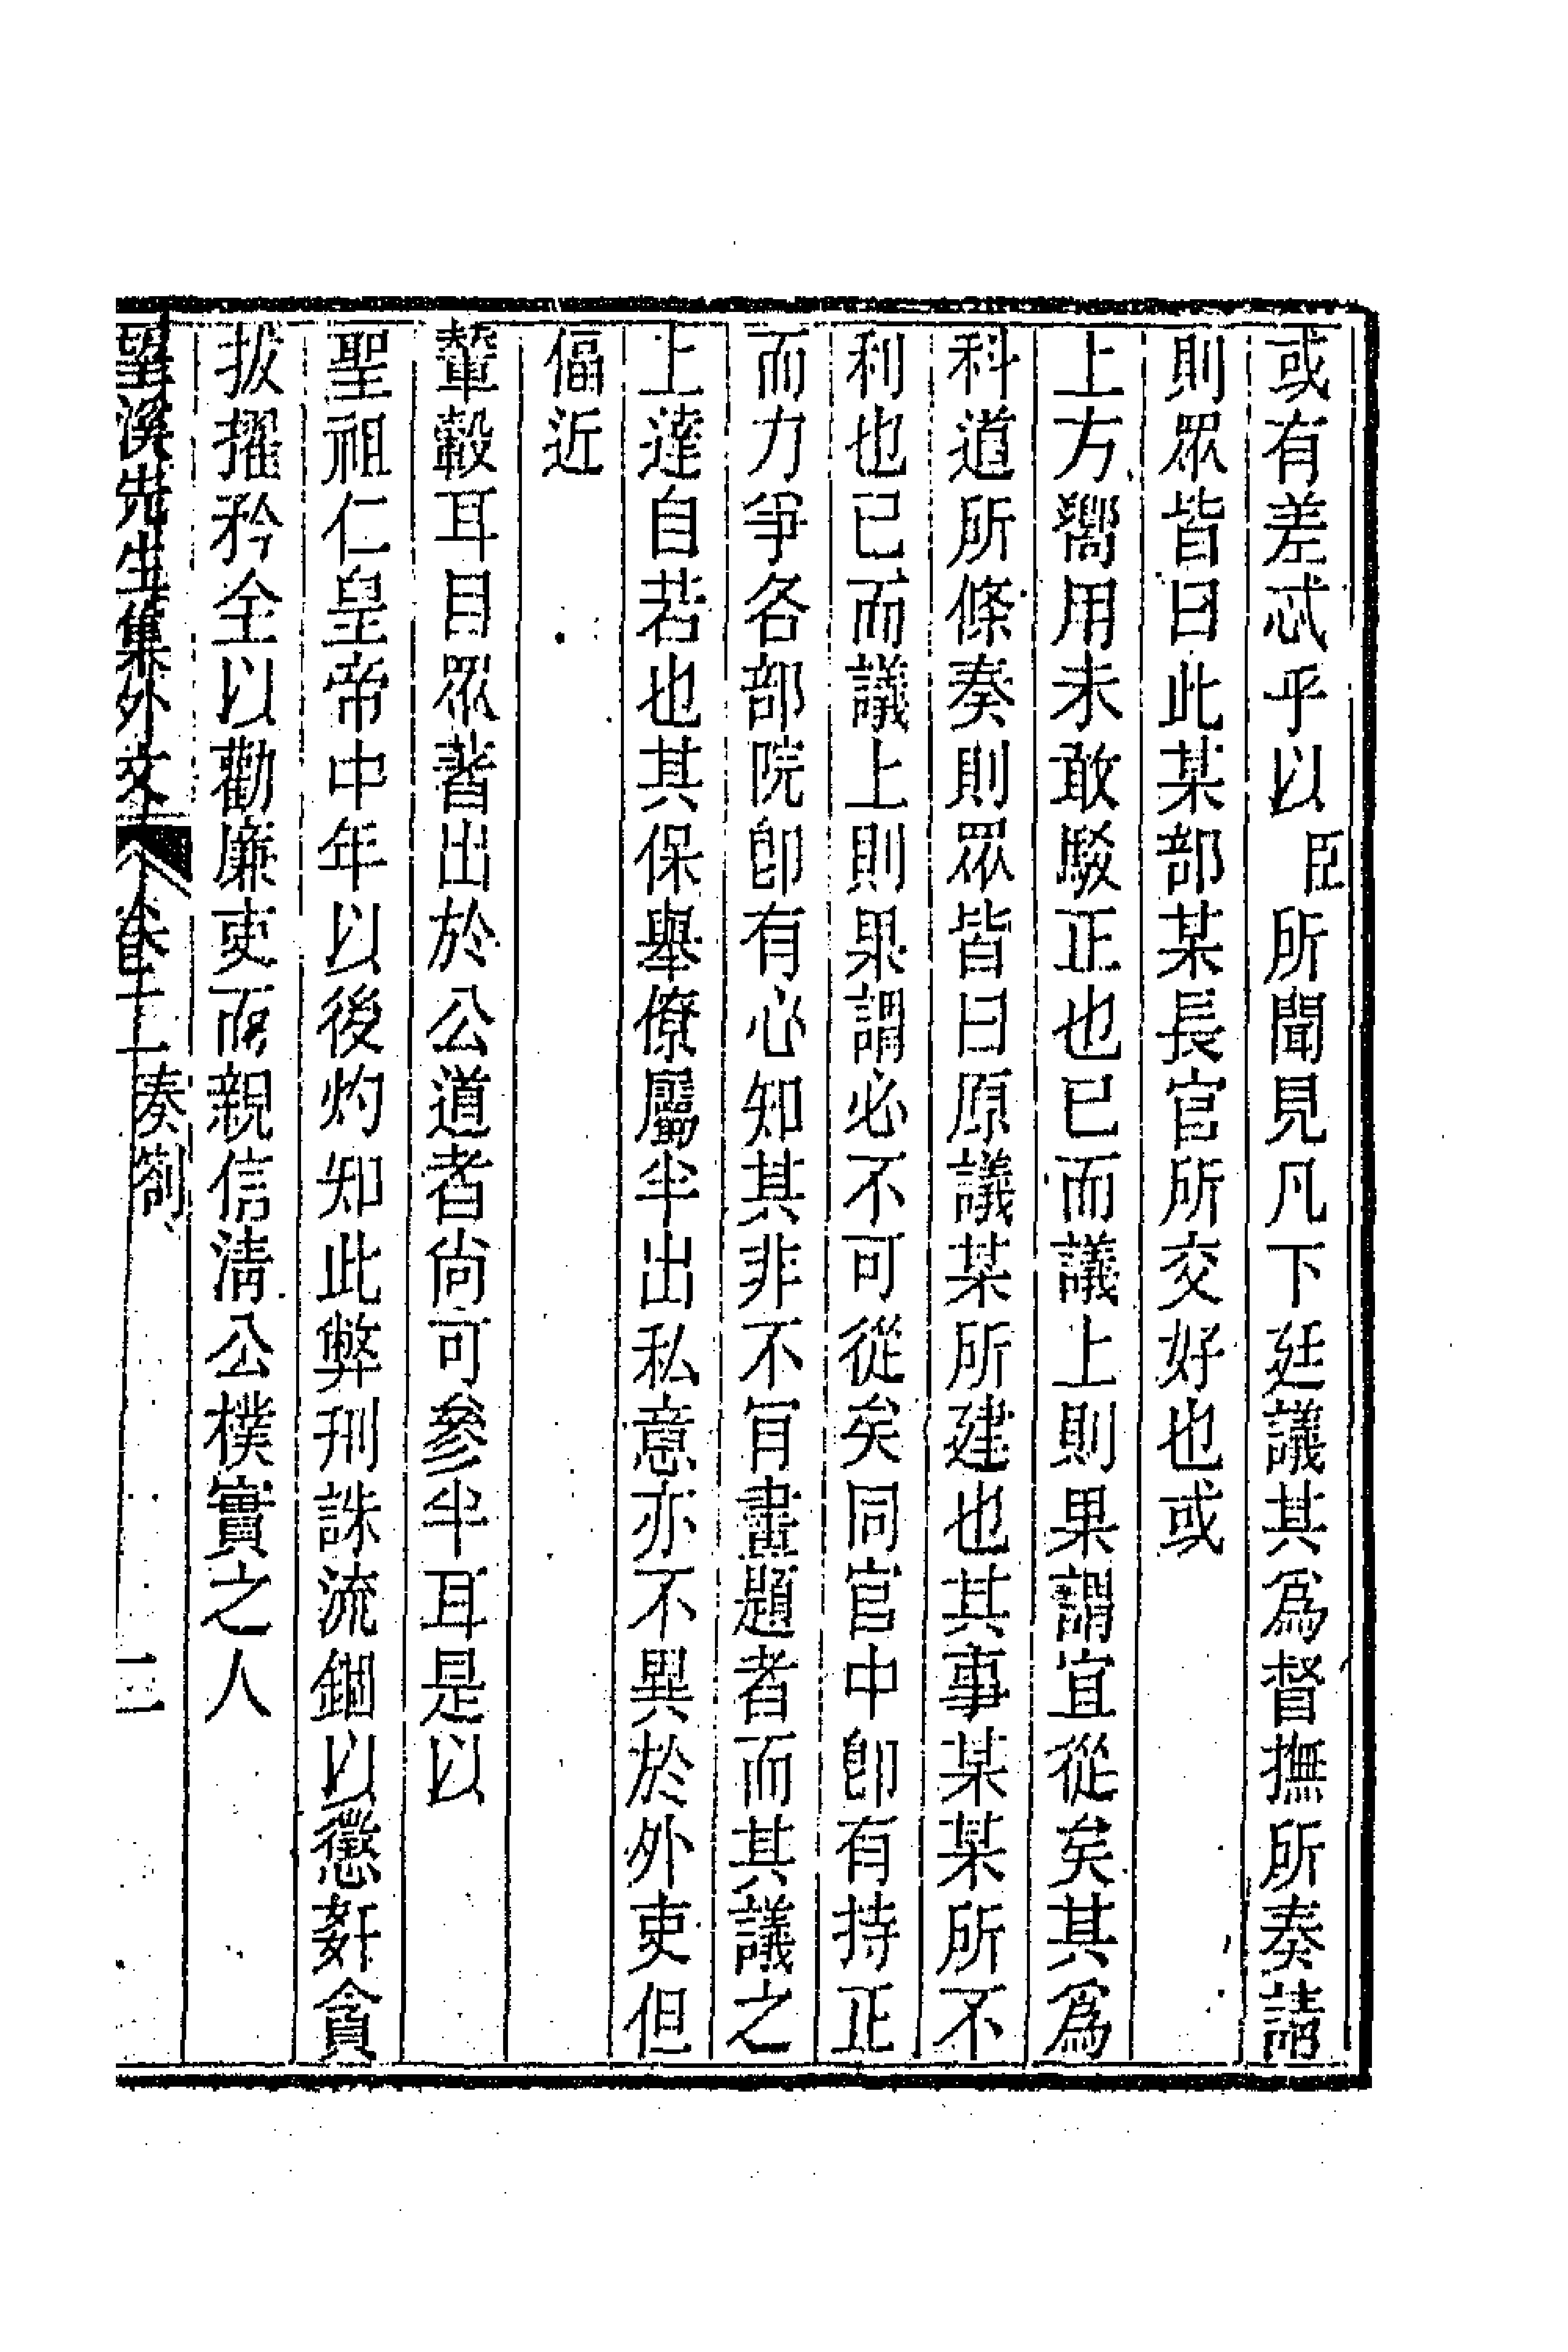 或有差忒乎以臣所聞見凡下廷議其爲督撫所奏請
則眾皆曰此某部某長官所交好也或
上方嚮用未敢駁正也已而議上則果謂宜從矣其爲
科道所條奏則眾皆曰原議某所建也其事某某所不
利也已而議上則果謂必不可從矣同官中卽有持正
而力爭各部院卽有心知其非不肎畫題者而其議之
上達自若也其保舉僚屬半出私意亦不異於外吏但
偪近
輦轂耳目眾著出於公道者尙可參半耳是以
聖祖仁皇帝中年以後灼知此弊刑誅流錮以懲姦貪
拔擢矜全以勸廉吏而親信淸公樸實之人
望溪先生集外文 卷一 奏劄 三